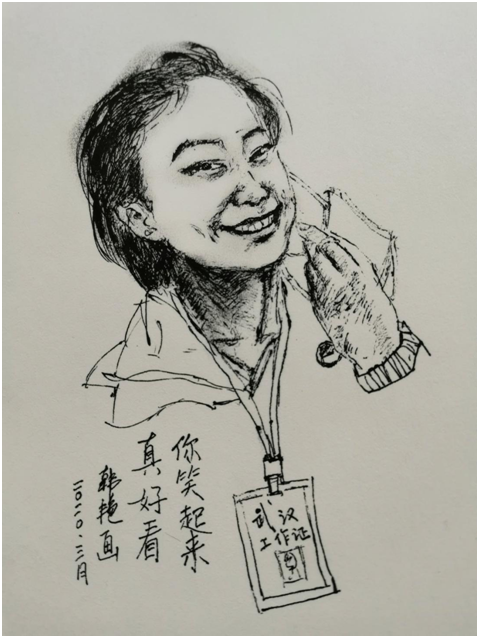 你笑起来
真好看
韩艳画
二〇二〇.三月
武汉
工作证